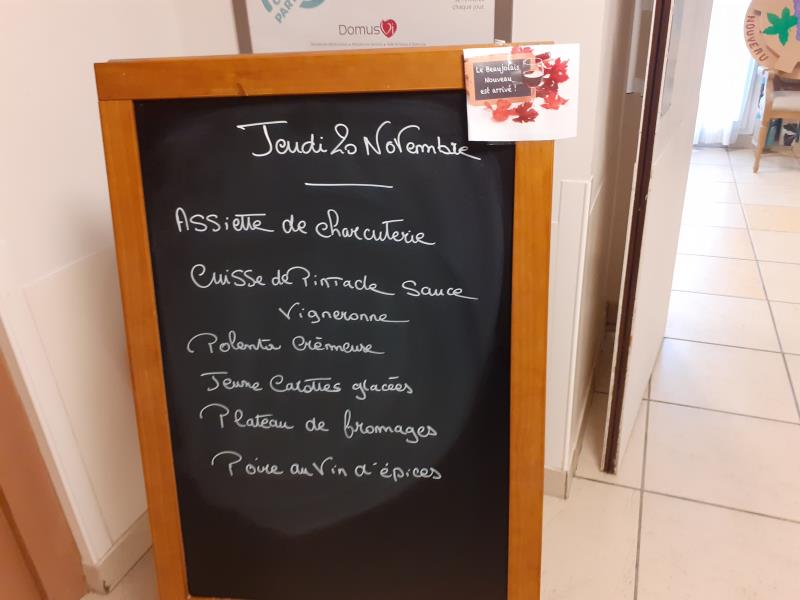 chaque jour
DomusVi
Le Beaujolais
Nouveau
est arrivé !
NOUVEAU
Jeudi 20 Novembre
Assiette de charcuterie
Cuisse de Pintade Sauce
Vigneronne
Polenta Crèmeuse
Jeune Carottes glacées
Plateau de fromages
Poire au Vin d'épices